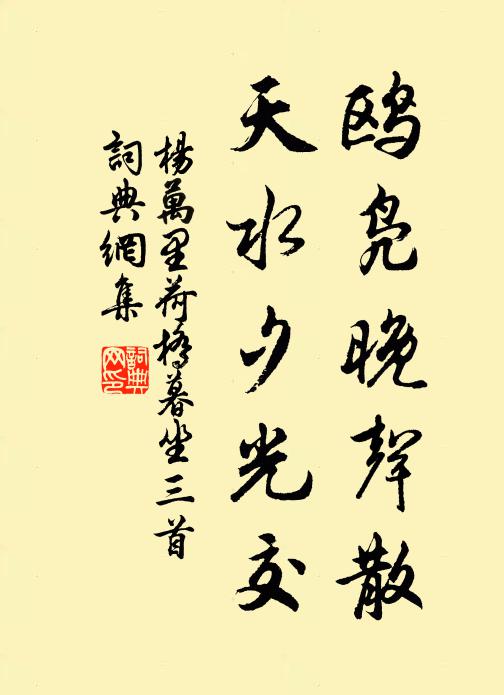 鸥凫晚聲散
天水夕光交
楊萬里荷橋暮坐三首
詞典網集
詞典网印